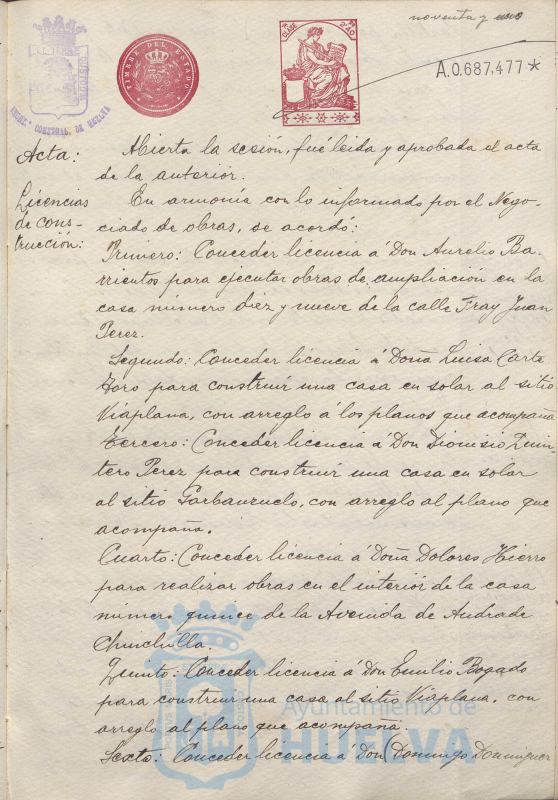 noventa y uno
TIMBRE DEL ESTADO
7ª CLASE
2'40
A.0.687,477*
EXCMO. AYUNTAMIENTO CONSTNAL. DE HUELVA
Acta:
Abierta la sesión, fué leida y aprobada el acta
de la anterior.
Licencias
de cons-
trucción:
En armonía con lo informado por el Nego-
ciado de obras, se acordó:
Primero: Conceder licencia á Don Aurelio Ba-
rrientos para ejecutar obras de ampliación en la
casa número diez y nueve de la calle Fray Juan
Perez.
Segundo: Conceder licencia á Doña Luisa Carte
Toro para construir una casa en solar al sitio
Viaplana, con arreglo á los planos que acompaña
Tercero: Conceder licencia á Don Dionisio Quin-
tero Perez para construir una casa en solar
al sitio Garbanzuelo, con arreglo al plano que
acompaña.
Cuarto: Conceder licencia á Doña Dolores Hierro
para realizar obras en el interior de la casa
número quince de la Avenida de Andrade
Chinchilla.
Quinto: Conceder licencia á Don Emilio Bogado
para construir una casa al sitio Viaplana, con
arreglo al plano que acompaña.
Sexto: Conceder licencia á Don Domingo Dominguez
Ayuntamiento de
HUELVA